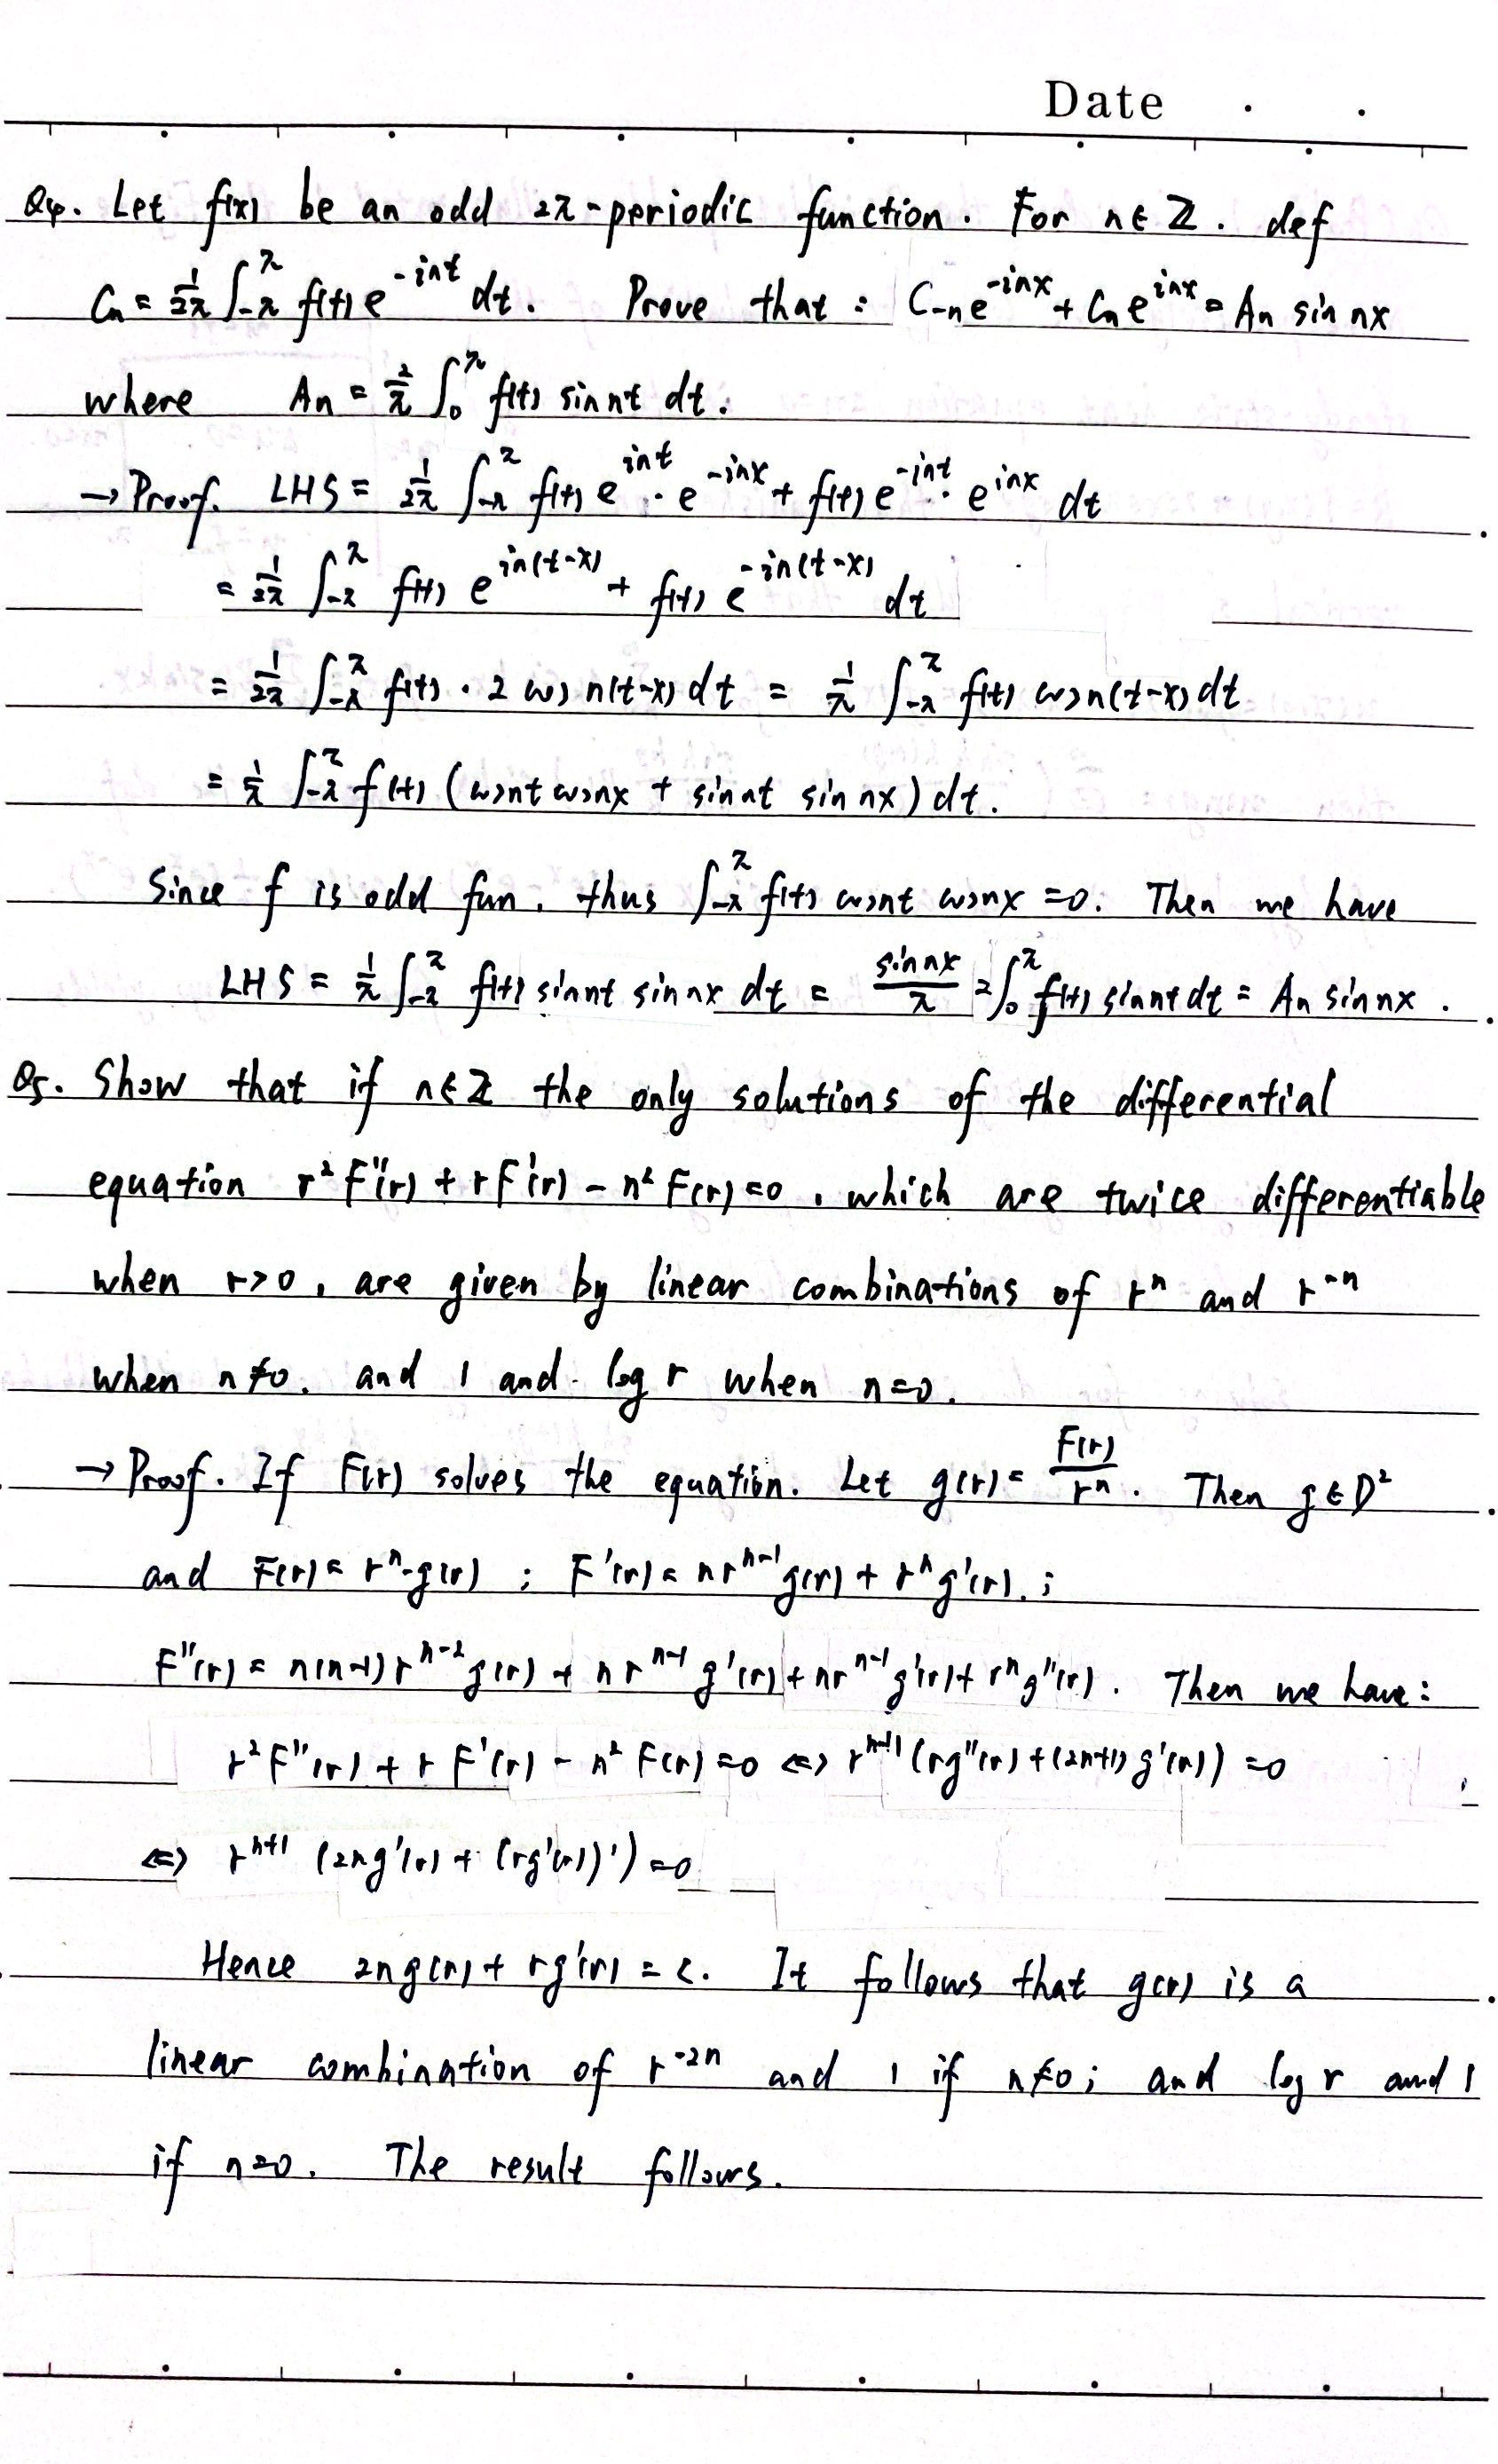 Date . .
Q4. Let f(x) be an odd 2π-periodic function. For n∈ℤ. def
Cn = 1/2π ∫_{-π}^{π} f(t) e^{-int} dt. Prove that : C_{-n} e^{-inx} + Cn e^{inx} = An sin nx
where An = 2/π ∫_0^π f(t) sin nt dt.
→ Proof. LHS = 1/2π ∫_{-π}^{π} f(t) e^{int} · e^{-inx} + f(t) e^{-int} · e^{inx} dt
= 1/2π ∫_{-π}^{π} f(t) e^{in(t-x)} + f(t) e^{-in(t-x)} dt
= 1/2π ∫_{-π}^{π} f(t) · 2 cos n(t-x) dt = 1/π ∫_{-π}^{π} f(t) cos n(t-x) dt
= 1/π ∫_{-π}^{π} f(t) (cos nt cos nx + sin nt sin nx) dt.
Since f is odd fun. thus ∫_{-π}^{π} f(t) cos nt cos nx = 0. Then we have
LHS = 1/π ∫_{-π}^{π} f(t) sin nt sin nx dt = sin nx/π 2∫_0^π f(t) sin nt dt = An sin nx.
Q5. Show that if n∈ℤ the only solutions of the differential
equation r² F''(r) + rF'(r) - n² F(r) = 0, which are twice differentiable
when r>0, are given by linear combinations of r^n and r^{-n}
when n≠0. and 1 and log r when n=0.
→ Proof. If F(r) solves the equation. Let g(r) = F(r)/r^n. Then g∈D²
and F(r) = r^n·g(r) ; F'(r) = nr^{n-1}g(r) + r^n g'(r). ;
F''(r) = n(n-1)r^{n-2}g(r) + nr^{n-1}g'(r) + nr^{n-1}g'(r) + r^n g''(r). Then we have:
r²F''(r) + rF'(r) - n²F(r) = 0 ⇔ r^{n+1}(rg''(r) + (2n+1)g'(r)) = 0
⇔ r^{n+1} (2ng'(r) + (rg'(r))') = 0
Hence 2ng(r) + rg'(r) = c. It follows that g(r) is a
linear combination of r^{-2n} and 1 if n≠0; and log r and 1
if n=0. The result follows.